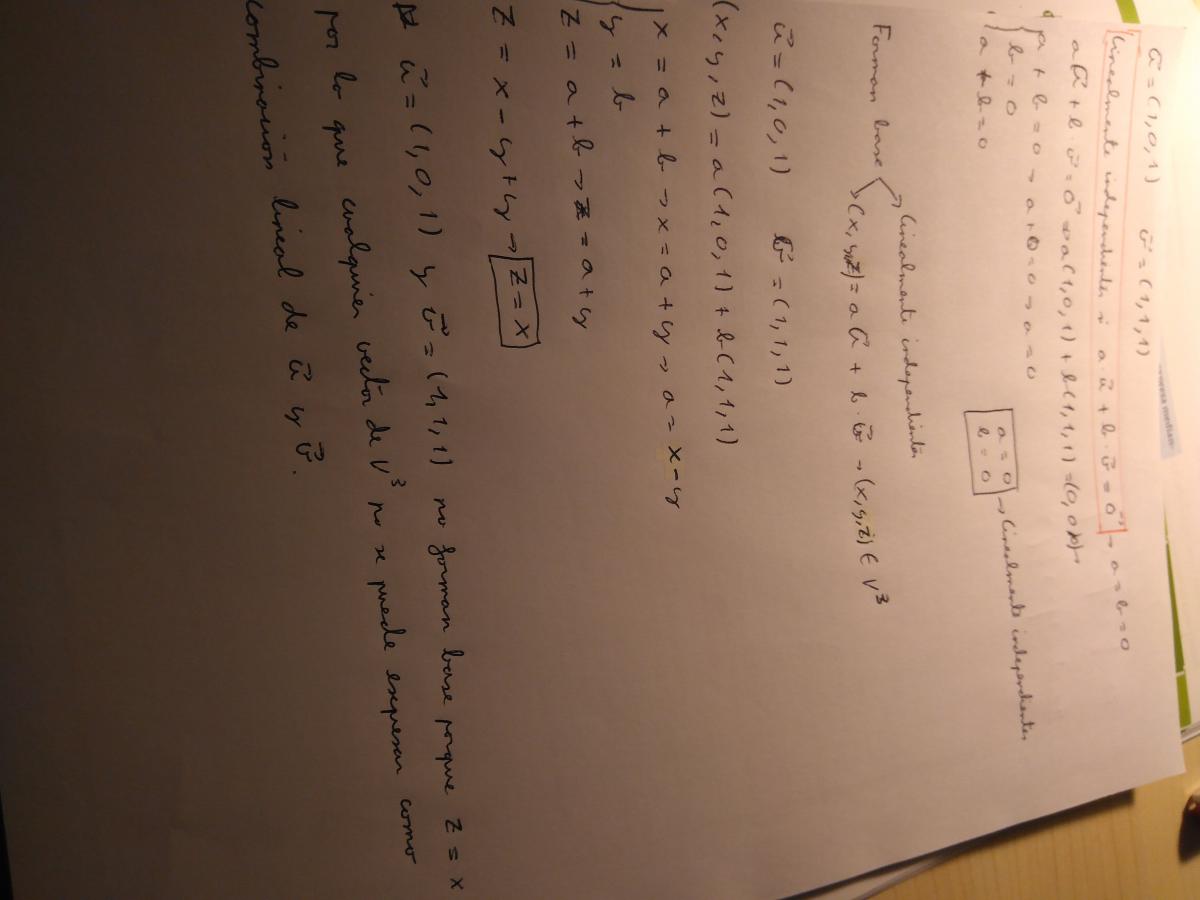 u⃗ = (1,0,1)   v⃗ = (1,1,1)
Linealmente independientes si a·u⃗ + b·v⃗ = 0⃗ → a = b = 0
a u⃗ + b·v⃗ = 0⃗ → a(1,0,1) + b(1,1,1) = (0,0,0) →
a + b = 0 → a + 0 = 0 → a = 0
b = 0
a + b = 0
a = 0
b = 0 → linealmente independientes
Forman base
linealmente independientes
(x,y,z) = a u⃗ + b·v⃗ → (x,y,z) ∈ V³
u⃗ = (1,0,1)   v⃗ = (1,1,1)
(x,y,z) = a(1,0,1) + b(1,1,1)
x = a + b → x = a + y → a = x - y
y = b
z = a + b → z = a + y
z = x - y + y → z = x
u⃗ = (1,0,1) y v⃗ = (1,1,1) no forman base porque z = x
por lo que cualquier vector de V³ no se puede expresar como
combinación lineal de u⃗ y v⃗.